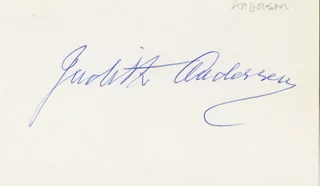 Anderson
Judith Anderson